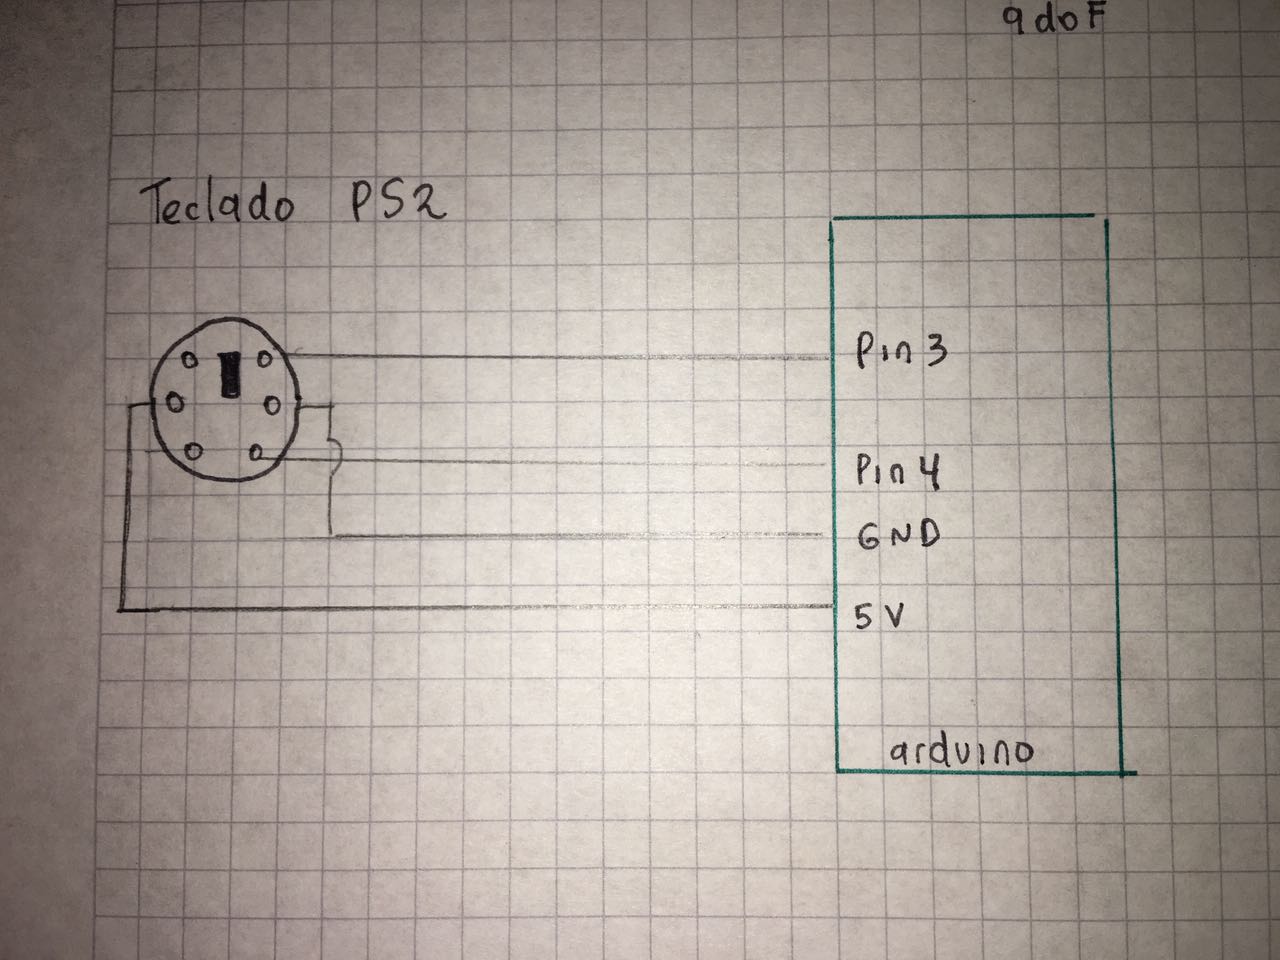 9doF
Teclado PS2
Pin 3
Pin 4
GND
5V
arduino